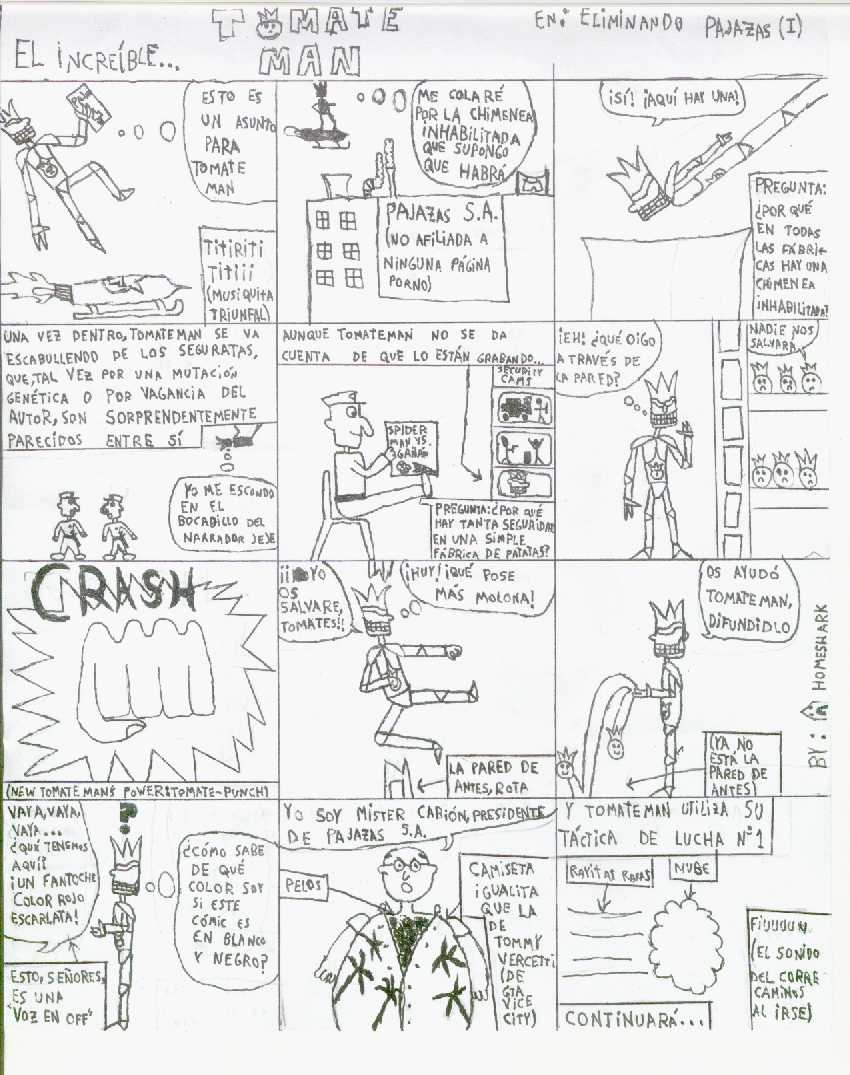 EL INCREÍBLE...
TOMATE
MAN
EN: ELIMINANDO PAJAZAS (I)
ESTO ES
UN ASUNTO
PARA
TOMATE
MAN
TITIRITI
TITIII
(MUSIQUITA
TRIUNFAL)
ME COLARÉ
POR LA CHIMENEA
INHABILITADA
QUE SUPONGO
QUE HABRÁ
PAJAZAS S.A.
(NO AFILIADA A
NINGUNA PÁGINA
PORNO)
¡SÍ! ¡AQUÍ HAY UNA!
PREGUNTA:
¿POR QUÉ
EN TODAS
LAS FÁBRI-
CAS HAY UNA
CHIMENEA
INHABILITADA?
UNA VEZ DENTRO, TOMATEMAN SE VA
ESCABULLENDO DE LOS SEGURATAS,
QUE, TAL VEZ POR UNA MUTACIÓN
GENÉTICA O POR VAGANCIA DEL
AUTOR, SON SORPRENDENTEMENTE
PARECIDOS ENTRE SÍ
YO ME ESCONDO
EN EL
BOCADILLO DEL
NARRADOR JEJE
AUNQUE TOMATEMAN NO SE DA
CUENTA DE QUE LO ESTÁN GRABANDO...
SECURITY
CAMS
SPIDER
MAN VS.
PREGUNTA: ¿POR QUÉ
HAY TANTA SEGURIDAD
EN UNA SIMPLE
FÁBRICA DE PATATAS?
¡EH! ¿QUÉ OIGO
A TRAVÉS DE
LA PARED?
NADIE NOS
SALVARÁ
CRASH
(NEW TOMATEMAN'S POWER: TOMATE-PUNCH)
¡¡YO
OS
SALVARE,
TOMATES!!
¡HUY! ¡QUÉ POSE
MÁS MOLONA!
LA PARED DE
ANTES, ROTA
OS AYUDÓ
TOMATEMAN,
DIFUNDIDLO
(YA NO
ESTÁ LA
PARED DE
ANTES)
BY: HOMESHARK
VAYA, VAYA,
VAYA...
¿QUÉ TENEMOS
AQUÍ?
¡UN FANTOCHE
COLOR ROJO
ESCARLATA!
?
¿CÓMO SABE
DE QUÉ
COLOR SOY
SI ESTE
CÓMIC ES
EN BLANCO
Y NEGRO?
ESTO, SEÑORES,
ES UNA
"VOZ EN OFF"
YO SOY MISTER CABIÓN, PRESIDENTE
DE PAJAZAS S.A.
PELOS
CAMISETA
IGUALITA
QUE LA
DE
TOMMY
VERCETTI
(DE
GTA
VICE
CITY)
Y TOMATEMAN UTILIZA SU
TÁCTICA DE LUCHA Nº1
RAYITAS RARAS
NUBE
FIUUUUN
(EL SONIDO
DEL CORRE
CAMINOS
AL IRSE)
CONTINUARÁ...